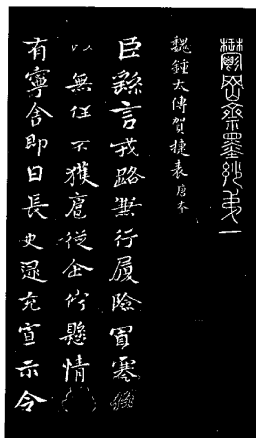 鬱岡齋墨妙第一
魏鍾太傅賀捷表唐本
臣繇言戎路兼行履險冒寒
以無任不獲扈從企佇懸情
有寧舍即日長史逯充宣示令